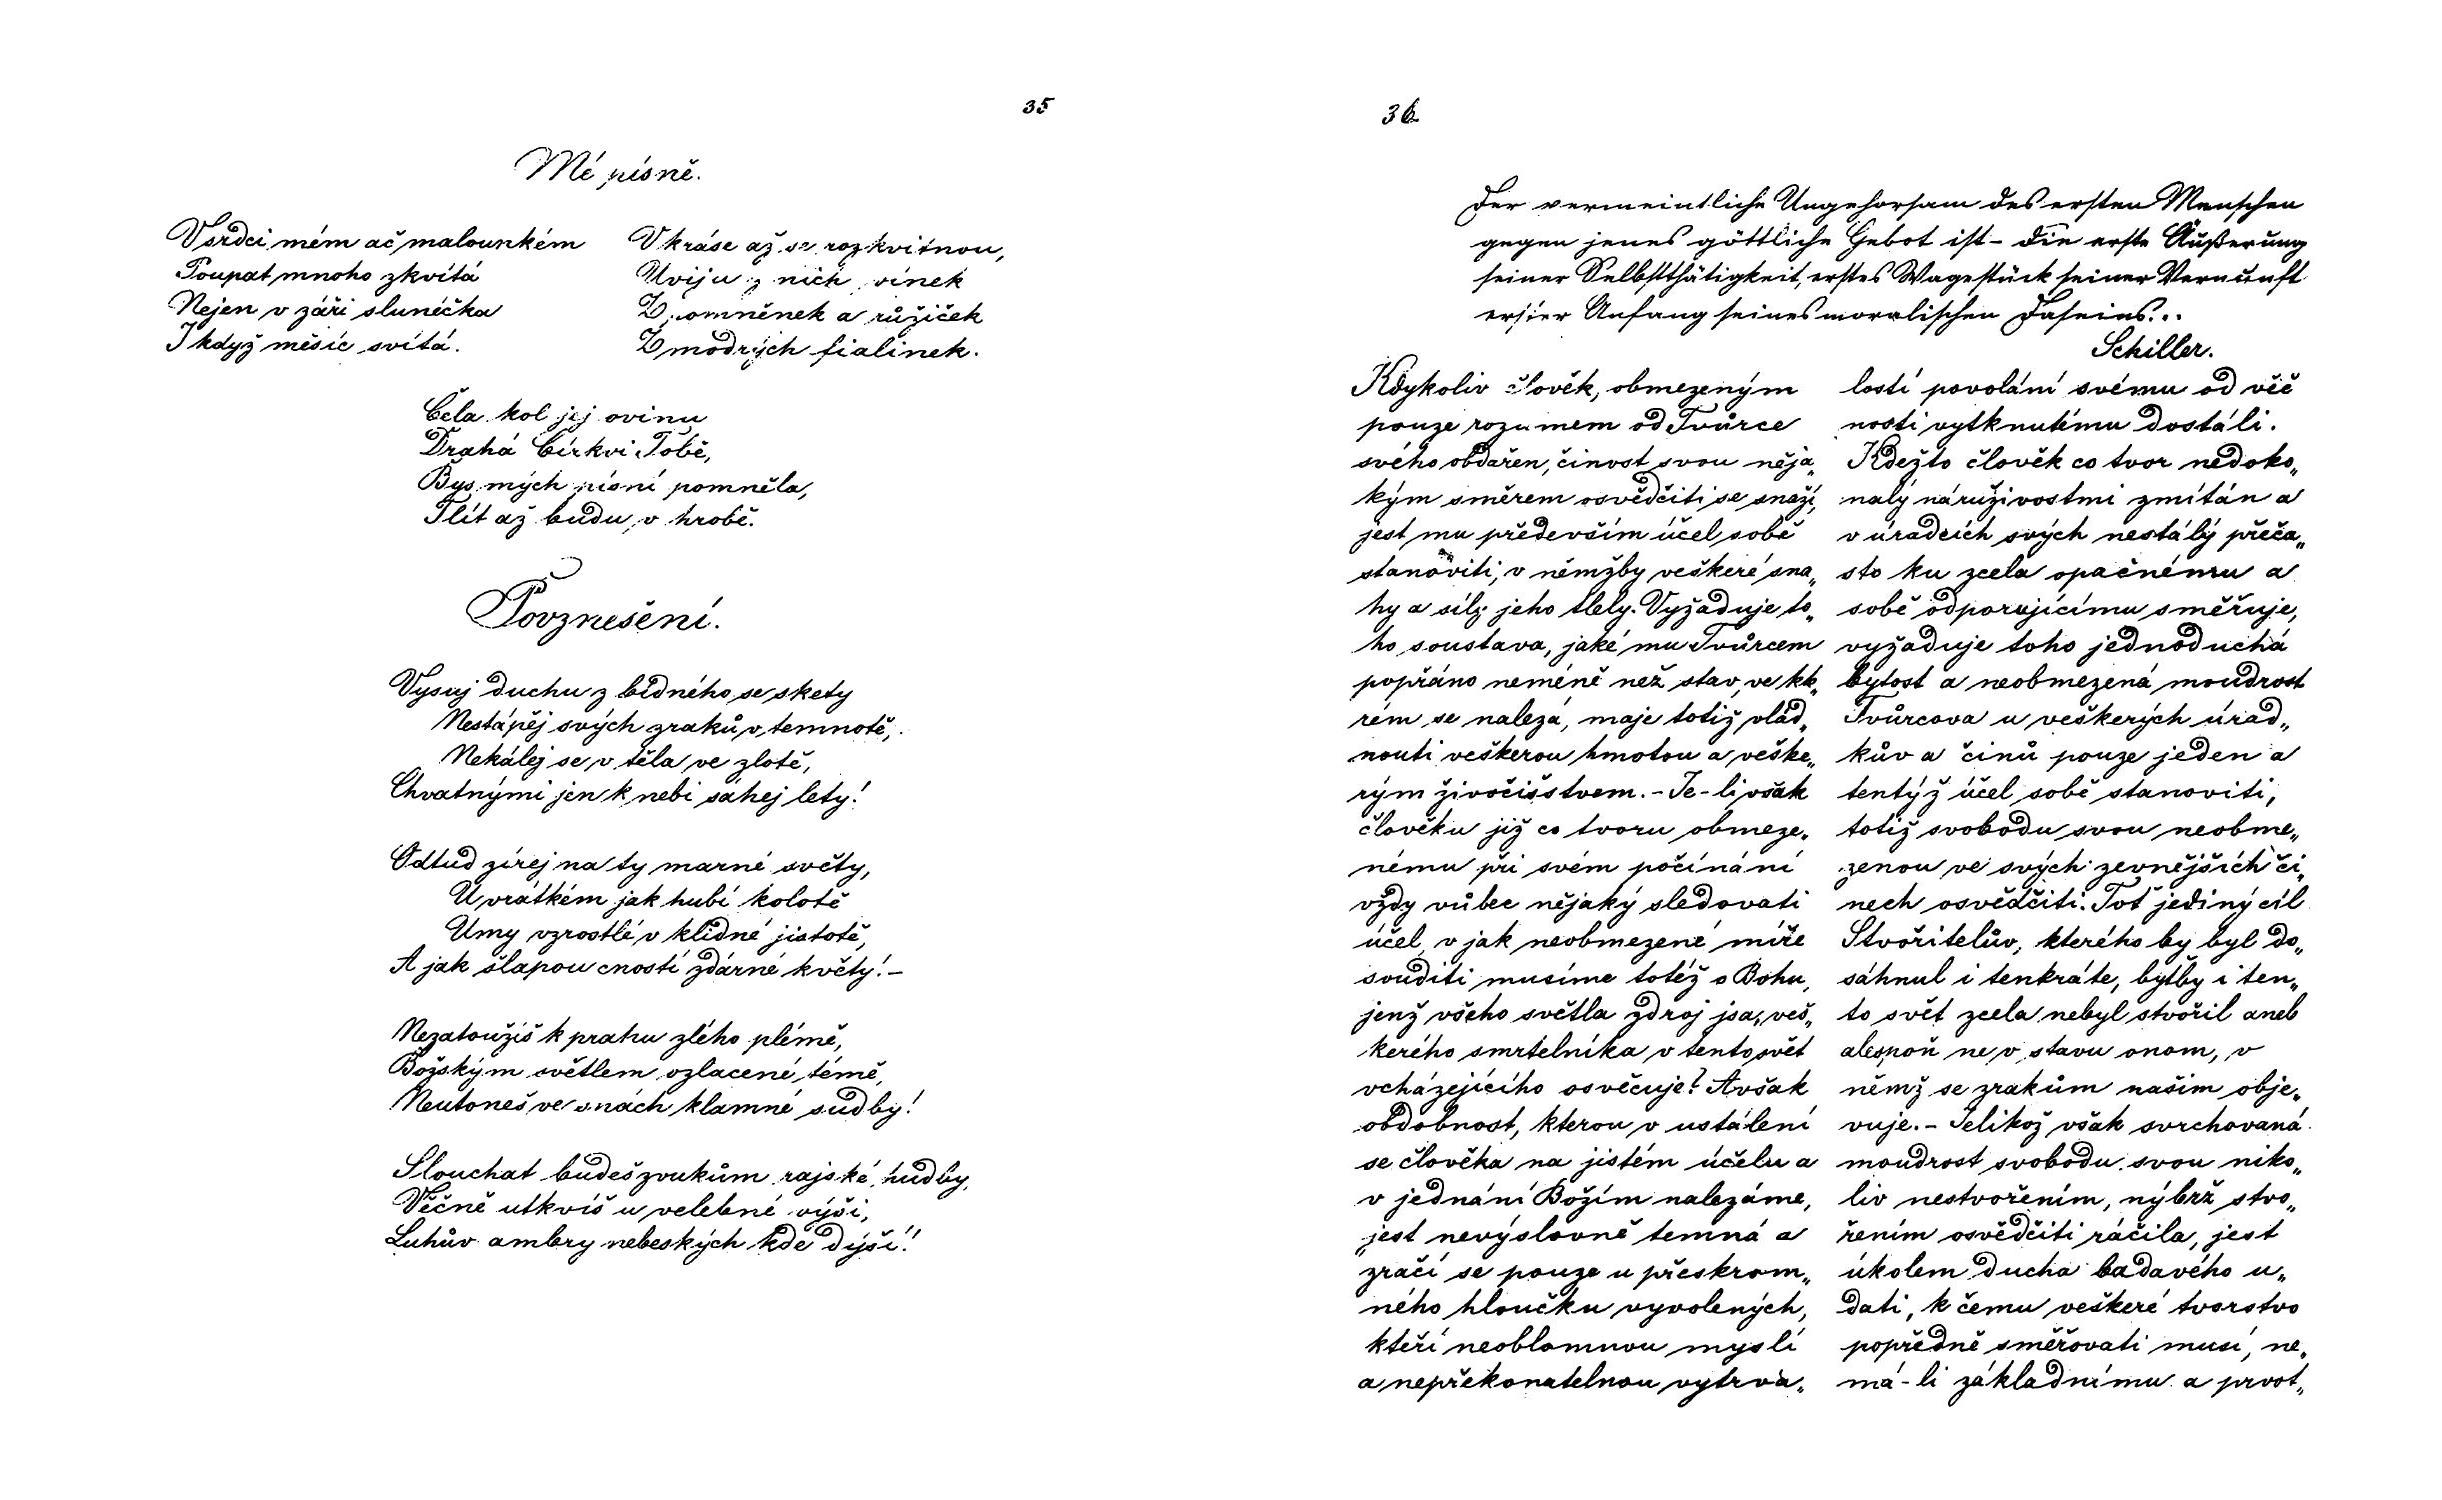 35
Mé písně.
V srdci mém ač malounkém
Poupat mnoho zkvítá
Nejen v záři slunéčka
I když měsíc svítá.
V kráse až se rozkvitnou,
Uviju z nich vínek
Z pomněnek a růžiček
Z modrých fialinek.
Čela kol jej ovinu
Drahá Církvi Tobě,
Bys mých písní pomněla,
Tlít až budu v hrobě.
Povznešení.
Vysuj duchu z bídného se skety
Nestápěj svých zraků v temnotě,
Nekálej se v těla ve zlotě,
Chvatnými jen k nebi sáhej lety!
Odtud zírej na ty marné světy,
U vrátkém jak hubí kolotě
Umy vzrostlé v klidné jistotě,
A jak šlapou cností zdárné květy! –
Nezatoužíš k prahu zlého plémě,
Božským světlem ozlacené témě,
Neutoneš ve snách klamné sudby!
Slouchat budeš zvukům rajské hudby,
Věčně utkvíš u velebné výši,
Luhův ambry nebeských kde dýší!
36
Der vermeintliche Ungehorsam des ersten Menschen
gegen jenes göttliche Gebot ist – die erste Äußerung
seiner Selbstthätigkeit, erstes Wagestück seiner Vernunft
erster Anfang seines moralischen Daseins...
Schiller.
Kdykoliv člověk, obmezeným
pouze rozumem od Tvůrce
svého obdařen, činost svou něja„
kým směrem osvědčiti se snaží,
jest mu především účel sobě
stanoviti, v němžby veškeré sna„
hy a síly jeho tlely. Vyžaduje to„
ho soustava, jaké mu Tvůrcem
popřáno neméně než stav, ve kte„
rém se nalezá, maje totiž vlád„
nouti veškerou hmotou a veške„
rým živočišstvem. – Je-li však
člověku již co tvoru obmeze„
nému při svém počínání
vždy vůbec nějaký sledovati
účel, v jak neobmezené míře
souditi musíme totéž o Bohu,
jenž všeho světla zdroj jsa, veš„
kerého smrtelníka v tento svět
vcházejícího osvěcuje? Avšak
obdobnost, kterou v ustálení
se člověka na jistém účelu a
v jednání Božím nalezáme,
jest nevýslovně temná a
zračí se pouze u přeskrom„
ného hloučku vyvolených,
kteří neoblomnou myslí
a nepřekonatelnou vytrva„
lostí povolání svému od věč
nosti vytknutému dostáli.
Kdežto člověk co tvor nedoko„
nalý náruživostmi zmítán a
v úradcích svých nestálý přeča„
sto ku zcela opačnému a
sobě odporujícímu směřuje,
vyžaduje toho jednoduchá
bytost a neobmezená moudrost
Tvůrcova u veškerých úrad„
kův a činů pouze jeden a
tentýž účel sobě stanoviti,
totiž svobodu svou neobme„
zenou ve svých zevnějších či„
nech osvědčiti. Toť jediný cíl
Stvořitelův, kterého by byl do„
sáhnul i tenkráte, bytby i ten„
to svět zcela nebyl stvořil aneb
alespoň ne v stavu onom, v
němž se zrakům našim obje„
vuje. – Jelikož však svrchovaná
moudrost svobodu svou niko„
liv nestvořením, nýbrž stvo„
řením osvědčiti ráčila, jest
úkolem ducha badavého u„
dati, k čemu veškeré tvorstvo
popředně směřovati musí, ne„
má-li základnímu a prvot„